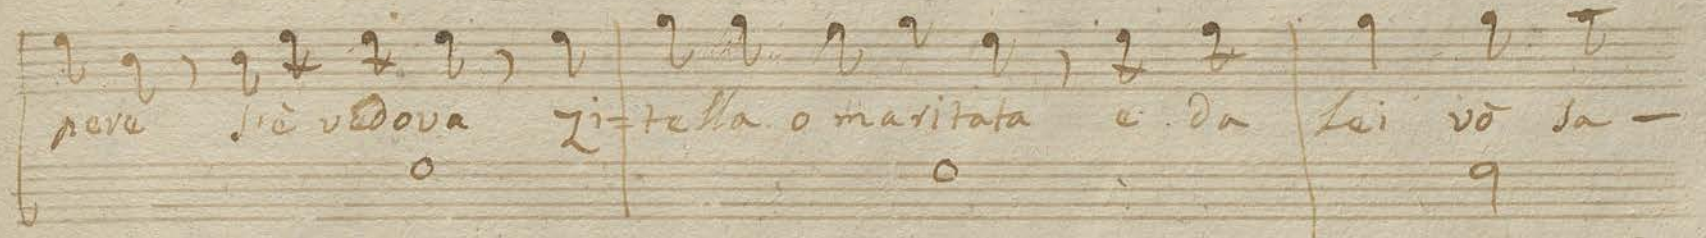 pere s'è vedova zi=tella o maritata e da Lei vò sa-